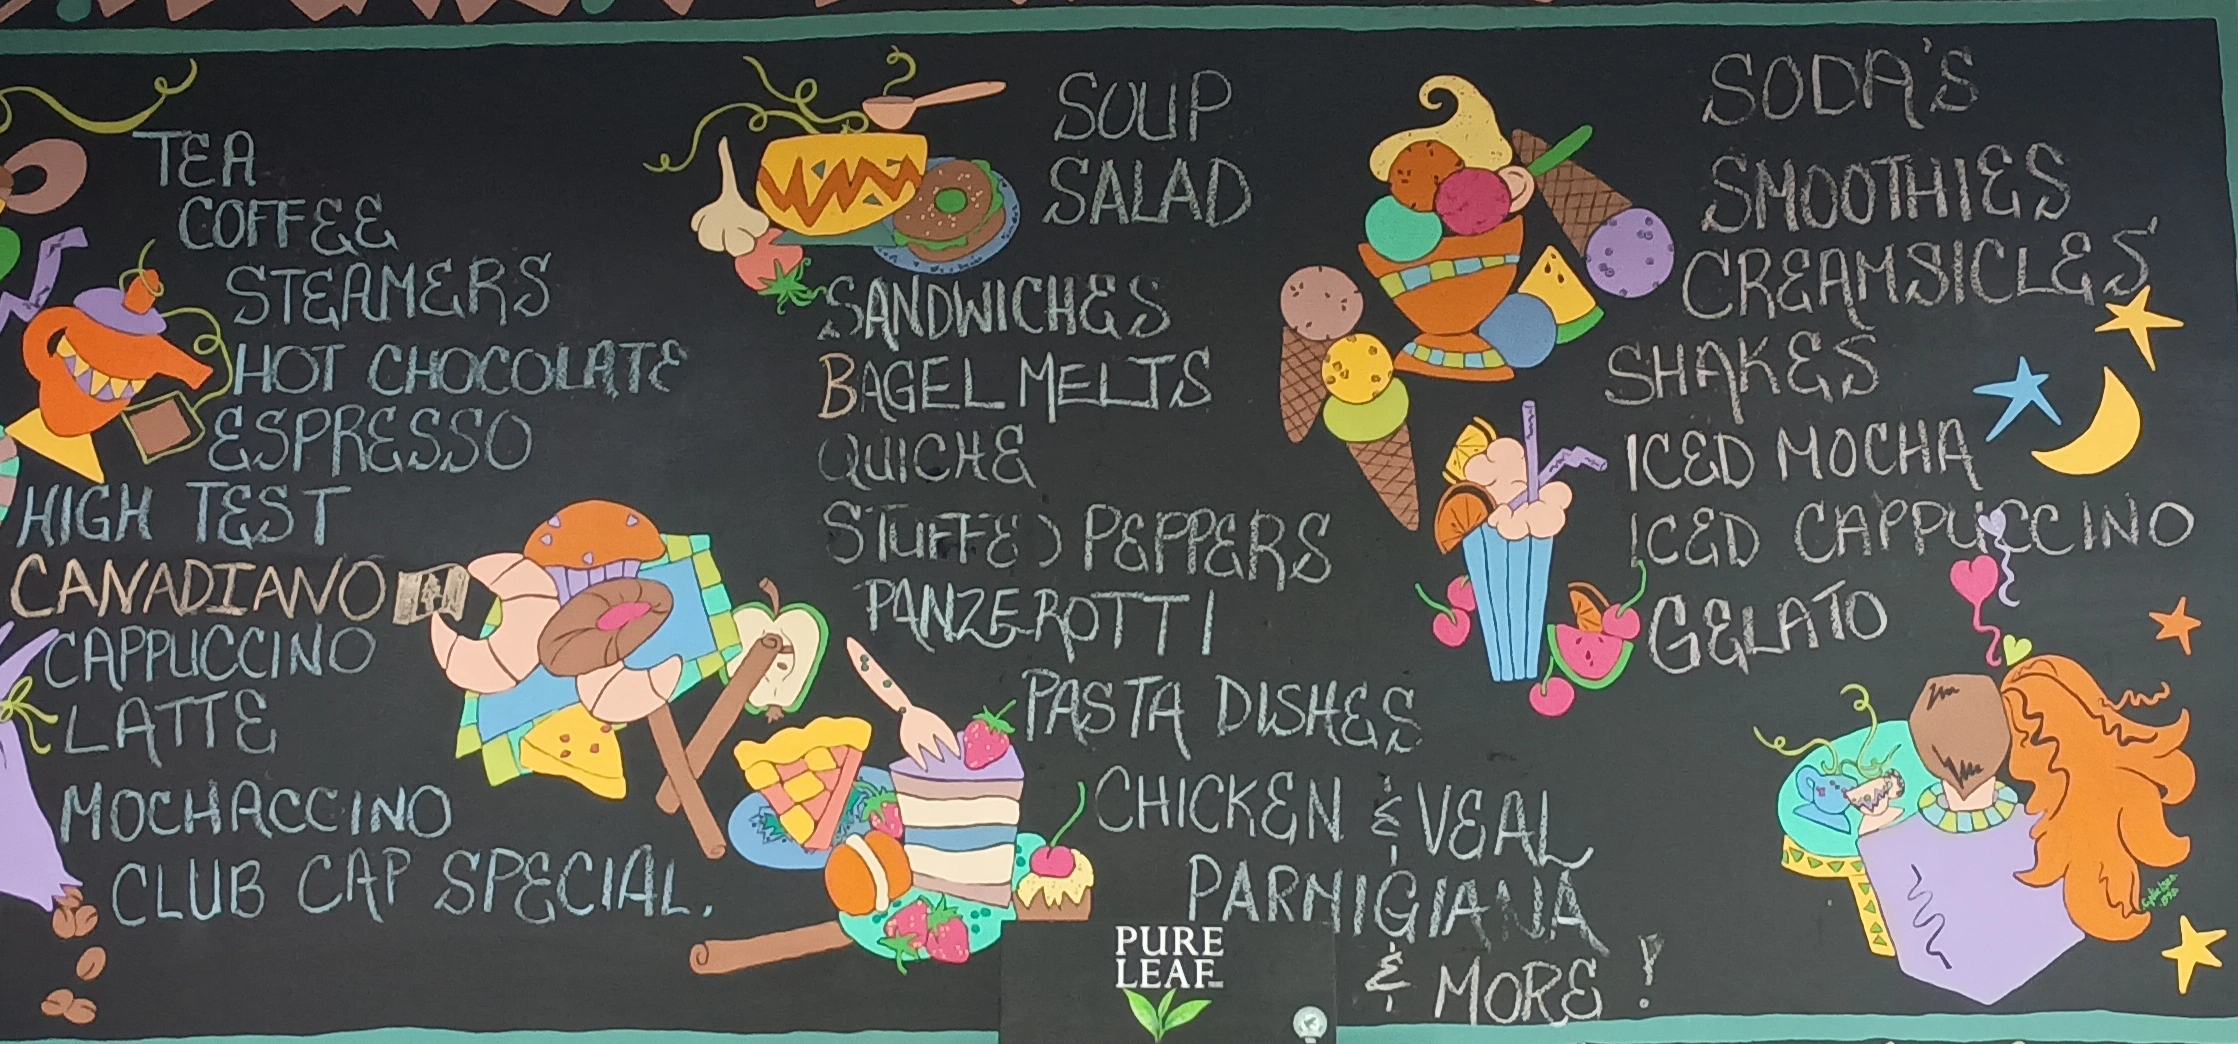 TEA
COFFEE
STEAMERS
HOT CHOCOLATE
ESPRESSO
HIGH TEST
CANADIANO
CAPPUCCINO
LATTE
MOCHACCINO
CLUB CAP SPECIAL.
SOUP
SALAD
SANDWICHES
BAGEL MELTS
QUICHE
STUFFED PEPPERS
PANZEROTTI
PASTA DISHES
CHICKEN & VEAL
PARMIGIANA
& MORE!
SODA'S
SMOOTHIES
CREAMSICLES
SHAKES
ICED MOCHA
ICED CAPPUCCINO
GELATO
PURE
LEAF